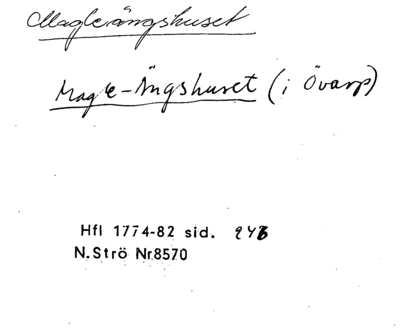 Magleängshuset
Magle-Ängshuset (i Övarp)
Hfl 1774-82 sid. 246
N.Strö Nr.8570